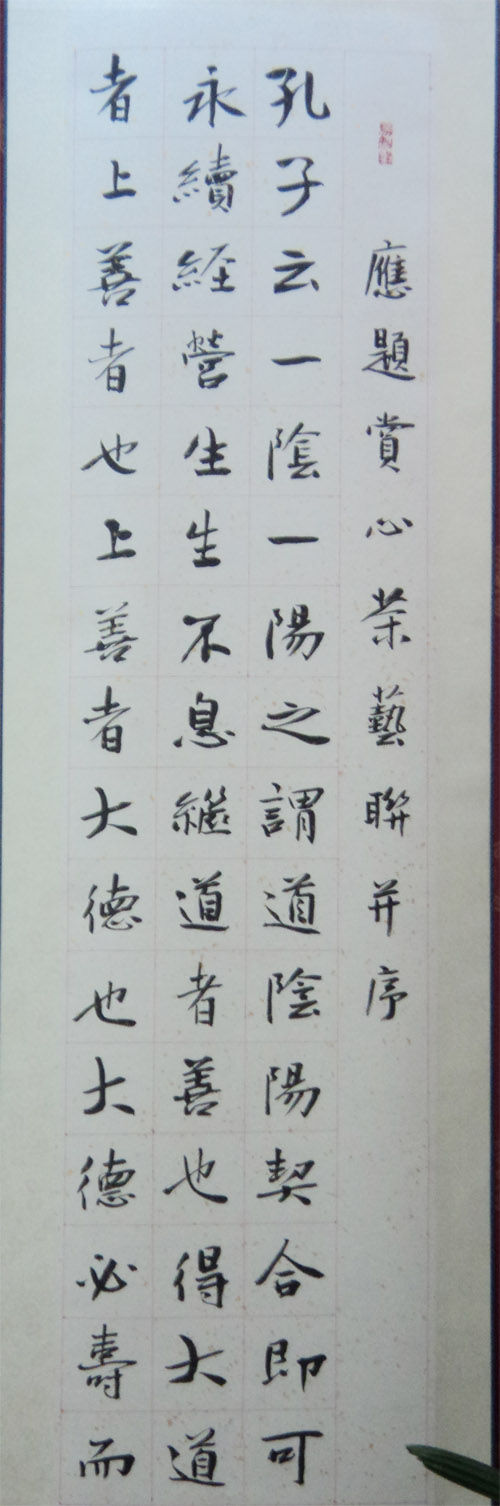 應題賞心茶藝聯并序
孔子云一陰一陽之謂道陰陽契合即可
永續経營生生不息繼道者善也得大道
者上善者也上善者大德也大德必壽而